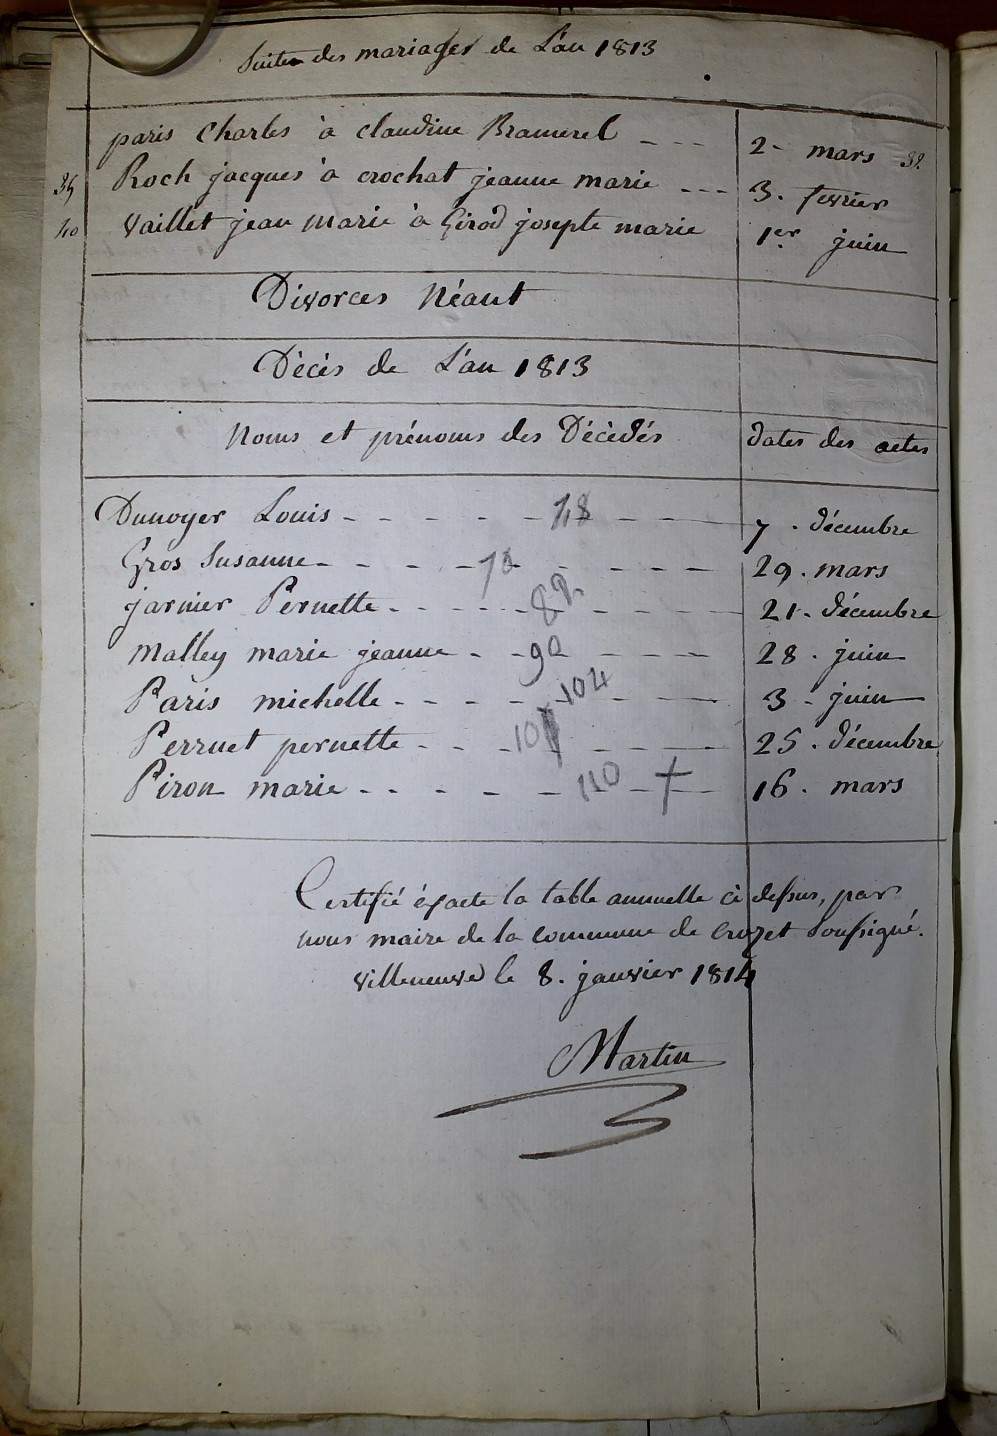 Suite des mariages de L'an 1813
paris Charles à claudine Bramerel - - - 2 - mars 32.
35 Roch jacques à crochat jeanne marie - - - 3. fevrier
40 Vaillet jean marie à Girod josephte marie 1er juin
Divorces Néant
Décès de L'an 1813
Noms et prénoms des Décédés dates des actes
Dunoyer Louis - - - - - 48 - - - 7. décembre
Gros Susanne - - - - 70 - - - - 29. mars
jarnier Pernette - - - - - 82 - - - 21. décembre
Malley marie jeanne - - 90 - - - 28. juin
Paris michelle - - - - - 104 - - - 3 - juin
Perruet pernette - - - 10 - - - 25. décembre
Piron marie - - - - - 110 - + - 16. mars
Certifié éxacte la table annuelle ci dessus, par
nous maire de la commune de crozet soussigné.
Villeneuve le 8. janvier 1814
Martin